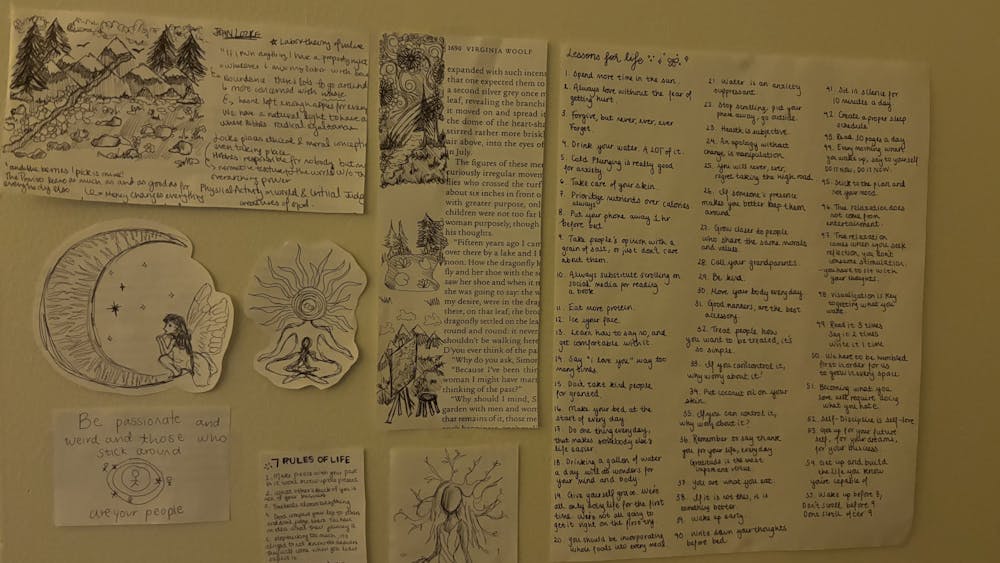 JOHN LOCKE
★ Labor theory of value
"If I own anything I have a property in
whatever I mix my labor with
there's lots to go around
↳ more concerned with waste
heart left enough apples for every
We have a natural right to have a
where Hobbes radical egalitarian
Locke places ethical & moral concepts
even taking place
Hobbes responsible for nobody but
overarching power
"and the berries I pick is mine"
The Proviso: leave as much and as good as for
everybody else
↳ Money changes everything
Physical Actors, in world & Critical Judg
creatures of god.
1690 VIRGINIA WOOLF
expanded with such incens
that one expected them to
a second silver grey one m
leaf, revealing the branchi
it moved on and spread it
the dome of the heart-sha
stirred rather more briskl
air above, into the eyes of
in July.
The figures these mer
curiously irregular movem
flies who crossed the turf
about six inches in front o
with greater purpose, only
children were not too far b
woman purposely, though
his thoughts.
"Fifteen years ago I cam
over there by a lake and I b
noon. How the dragonfly k
fly and her shoe with the s
saw her shoe and when it m
she was going to say: the w
my desire, were in the drag
there, on that leaf, the broa
dragonfly settled on the lea
round and round: it never
shouldn't be walking here
D'you ever think of the pa
"Why do you ask, Simon
"Because I've been thin
woman I might have marr
thinking of the past?"
"Why should I mind, S
garden with men and wom
that remains of it, those me
Be passionate and
weird and those who
stick around
are your people
7 RULES OF LIFE
1. Make peace with your past
so it won't mess up the present
2. What others think of you is
none of your business
3. Time heals almost everything
Lessons for life
1. Spend more time in the sun.
2. Always love without the fear of
getting hurt.
3. Forgive, but never, ever, ever
Forget.
4. Drink your water. A LOT of it.
5. Cold Plunging is really good
for anxiety
6. Take care of your skin.
7. Prioritize nutrients over calories
always
8. Put your phone away 1 hr
before bed
9. Take people's opinion with a
grain of salt, or just don't care
about them.
10. Always substitute scrolling on
social media for reading
a book
11. Eat more protein.
12. Ice your face
13. Learn how to say no, and
get comfortable with it.
14. Say "I love you" way too
many times.
15. Don't take kind people
for granted.
16. Make your bed at the
start of every day
17. Do one thing everyday,
that makes somebody else's
life easier.
18. Drinking a gallon of water
a day will do wonders for
your mind and body.
19. Give yourself grace. We're
all only living life for the first
time. We're not all going to
get it right on the first try.
20. You should be incorporating
whole foods into every meal.
21. Water is an anxiety
suppressant
22. Stop scrolling, put your
phone away, go outside.
23. Health is subjective.
24. An apology without
change is manipulation.
25. You will never, ever,
regret taking the high road.
26. If someone's presence
makes you better keep them
around
27. Grow closer to people
who share the same morals
and values
28. Call your grandparents
29. Be kind.
30. Move your body everyday
31. Good manners, are the best
accessory.
32. Treat people how
you want to be treated, it's
so simple.
33. If you can't control it,
why worry about it?
34. Put coconut oil on your
skin.
35. If you can control it,
why worry about it?
36. Remember to say thank
you for your life, everyday
Gratitude is the most
important virtue
37. You are what you eat.
38. If it is not this, it is
something better.
39. Wake up early
40. Write down your thoughts
before bed
41. Sit in silence for
10 minutes a day.
42. Create a proper sleep
schedule.
43. Read 10 pages a day.
44. Every morning when
you wake up, say to yourself
DO IT NOW, DO IT NOW.
45. Stick to the plan and
not your mood.
46. True relaxation does
not come from
entertainment
47. True relaxation
comes when you seek
reflection, you don't
consume stimulation
you have to sit with
your thoughts.
48. Visualization is key
to getting what you
want.
49. Read it 3 times
Say it 2 times
Write it 1 time
50. We have to be humbled
first in order for us
to grow in every space
51. Becoming what you
love will require doing
what you hate
52. Self-Discipline is self-love
53. Get up for your future
self, for your dreams,
for your success
54. Get up and build
the life you know
you're capable of
55. Wake up before 8,
Don't scroll before 9
Dont scroll after 9